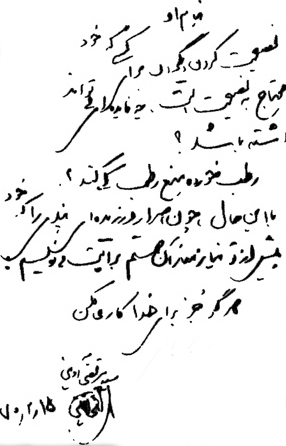 بنام او
نصیحت کردن دیگران برای کسی که خود
محتاج به نصیحت است، چه فایده‌ای می‌تواند
داشته باشد؟
رطب خورده منع رطب کی کند؟
با این حال چون اصرار ورزیده‌ای پندی را که خود
بیش از تو نیازمند آن هستم برایت می‌نویسم
هرگز جز برای خدا کار مکن
سید مرتضی آوینی